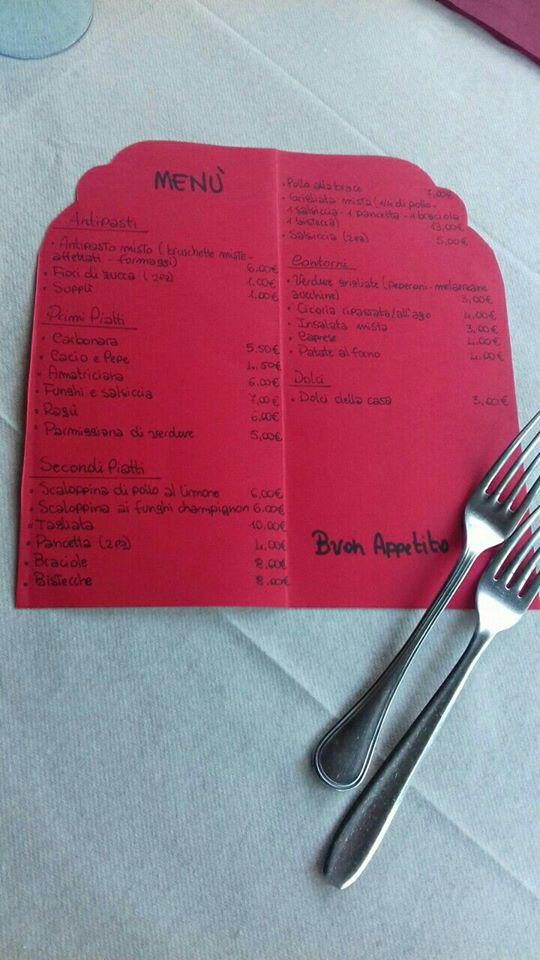 MENÙ
Antipasti
• Antipasto misto (bruschette miste -
affettati - formaggi) 6,00€
• Fiori di zucca (2pz) 1,00€
• Supplì 1,00€
Primi Piatti
• Carbonara 5,50€
• Cacio e Pepe 4,50€
• Amatriciana 6,00€
• Funghi e salsiccia 7,00€
• Ragù 6,00€
• Parmiggiana di verdure 5,00€
Secondi Piatti
• Scaloppina di pollo al limone 6,00€
• Scaloppina ai funghi champignon 6,00€
• Tagliata 10,00€
• Pancetta (2pz) 4,00€
• Braciole 8,00€
• Bistecche 8,00€
• Pollo alla brace 7,00€
• Grigliata mista (1/4 di pollo -
1 salsiccia - 1 pancetta - 1 braciola
1 bistecca) 13,00€
• Salsiccia (2pz) 5,00€
Contorni
• Verdure grigliate (peperoni - melanzane
zucchine) 3,00€
• Cicoria ripassata/all'agro 4,00€
• Insalata mista 3,00€
• Caprese 4,00€
• Patate al forno 4,00€
Dolci
• Dolci della casa 3,00€
Buon Appetito